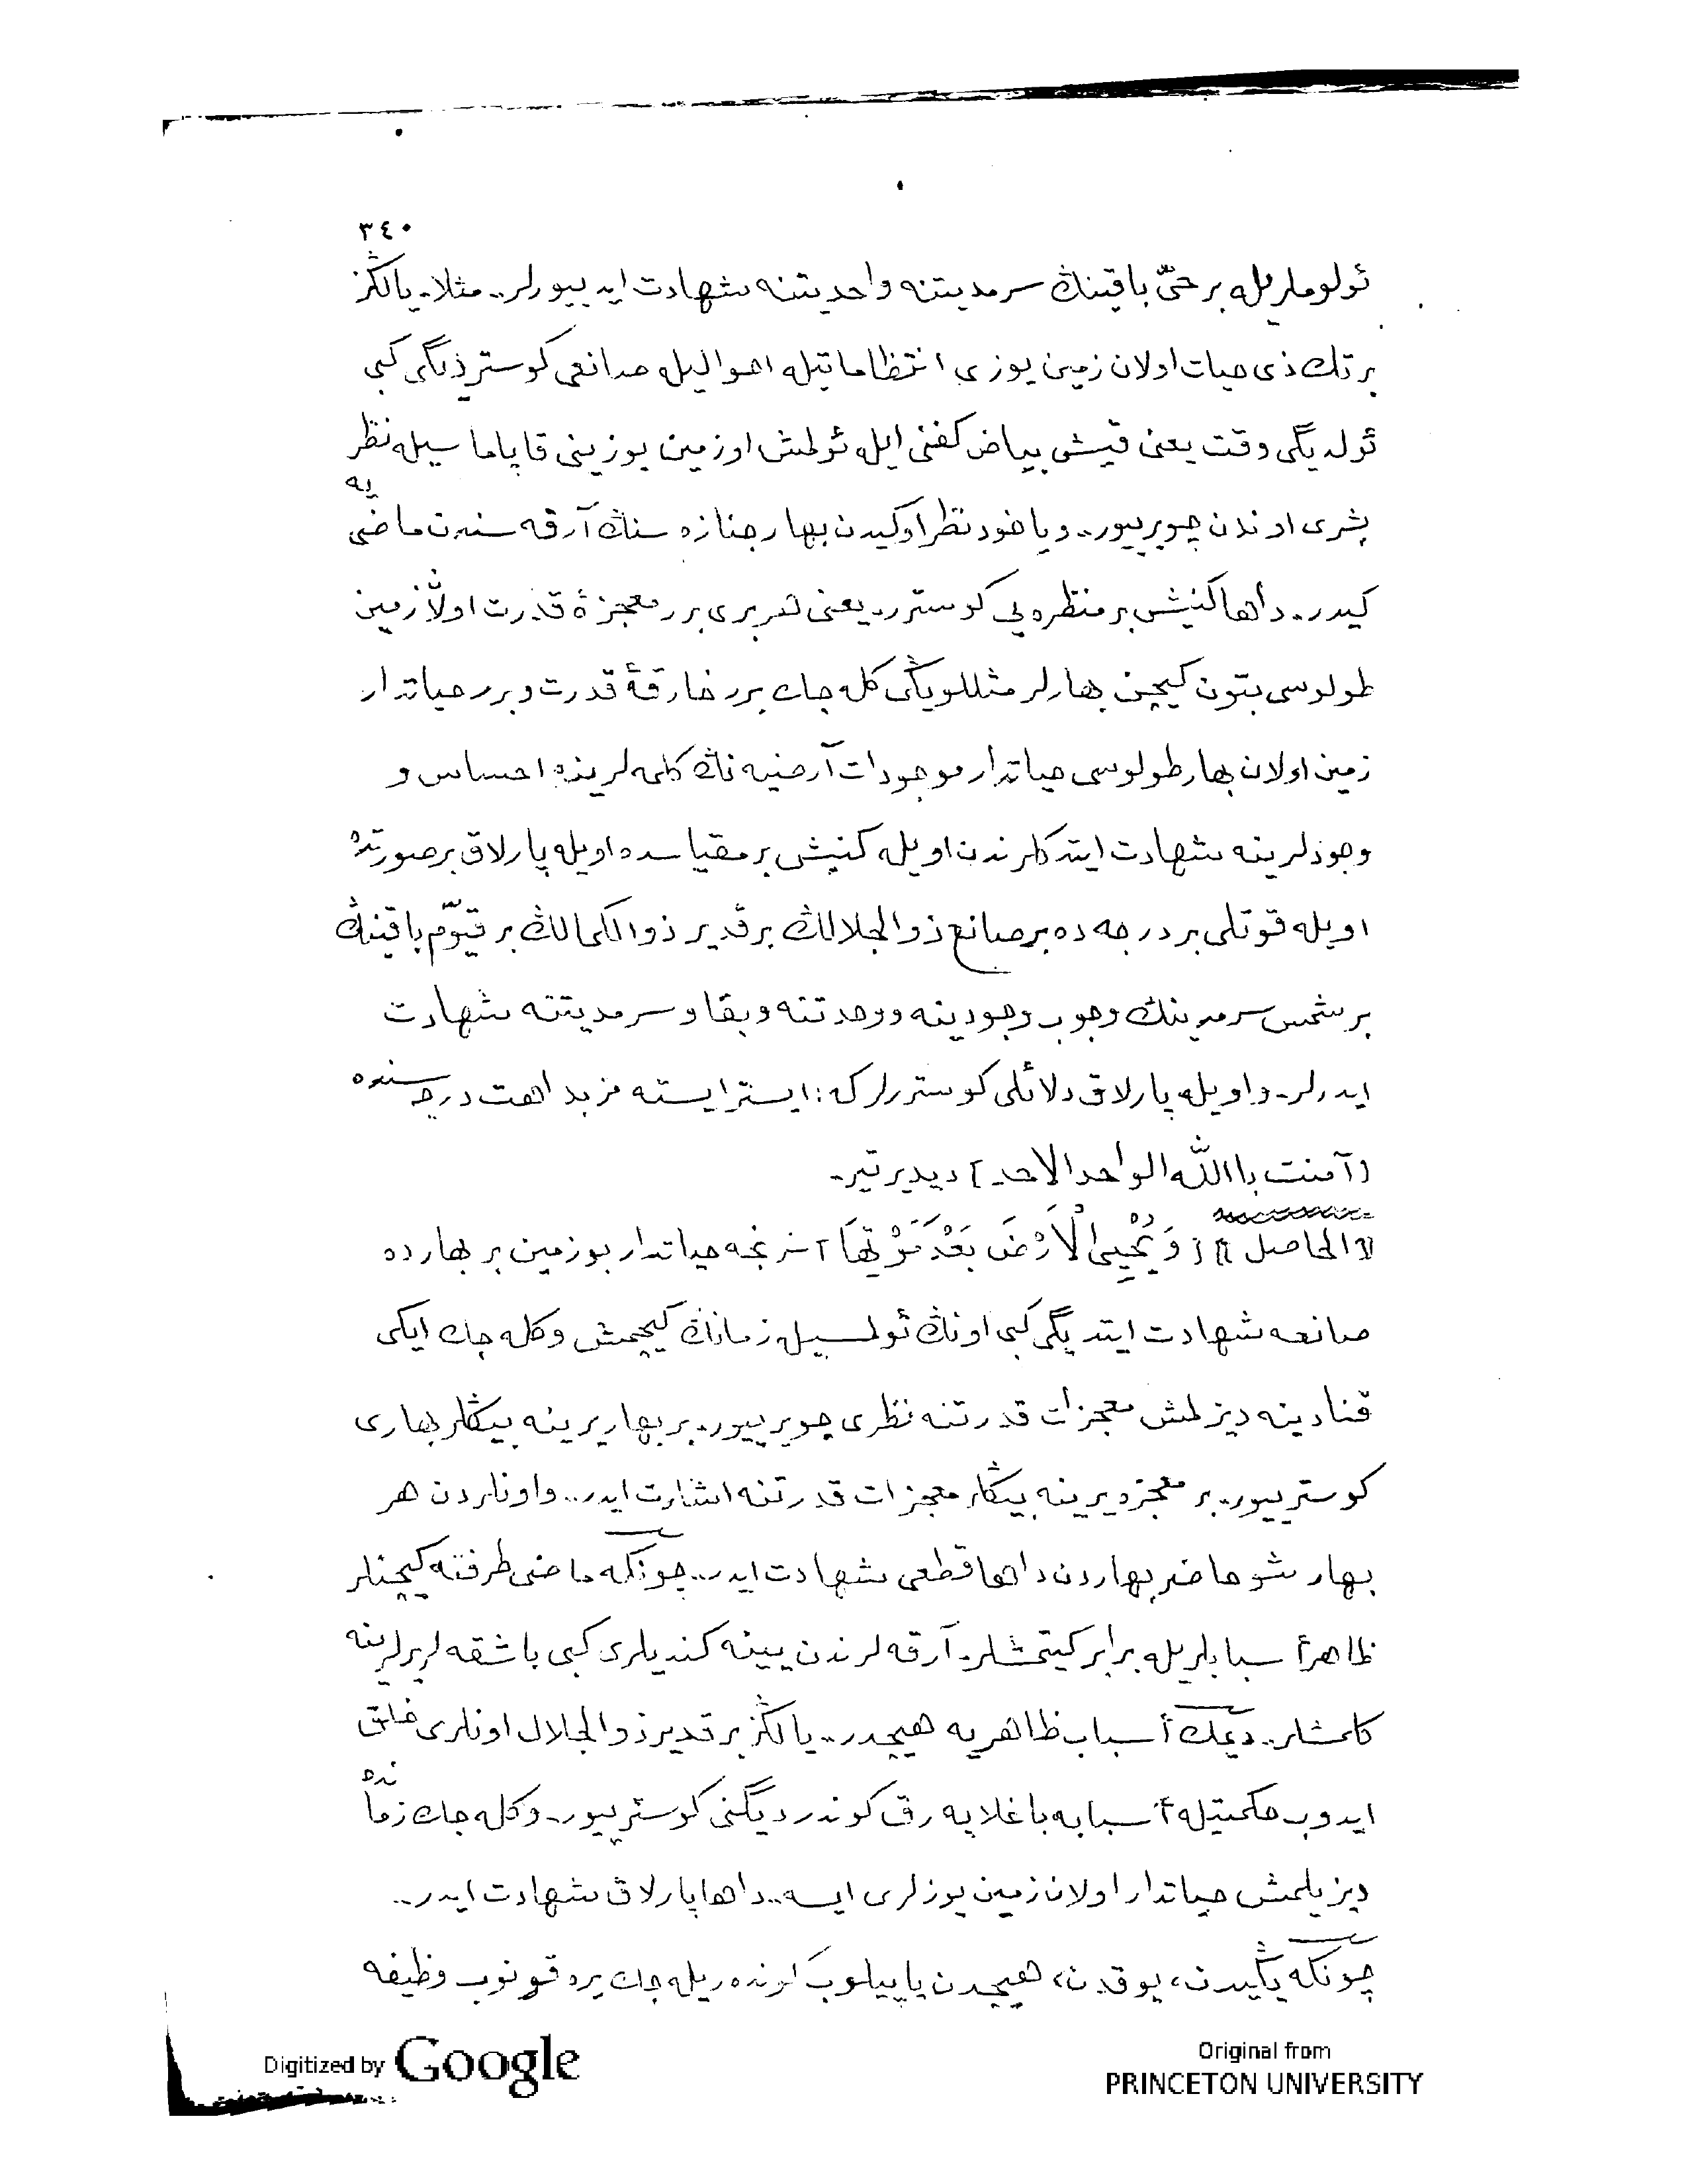 ٣٤٠
ئولوملريله بر حىّ باقينڭ سرمديتنه واحديتنه شهادت ايدييورلر.. مثلا. يالڭز
بر تك ذى حيات اولان زمين يوزى انتظاماتيله احواليله صانعى كوسترديگى كبى
ئولديگى وقت يعنى قيش بياض كفنى ايله ئولمش او زمين يوزينى قاپاماسيله نظر
بشرى اوندن چويرييور.. وياخود نظر او كيدن بهار جنازه سنڭ آرقه سندن ماضى‌يه
كيدر.. داها كنيش بر منظره يى كوسترر. يعنى هر برى برر معجزۀ قدرت اولان زمين
طولوسى بتون كيچن بهارلر مثللو يڭى كله جك برر خارقۀ قدرت و برر حياتدار
زمين اولان بهار طولوسى حياتدار موجودات آرضيه نڭ كلمه لرينه احساس و
وجودلرينه شهادت ايتدكلرندن اويله كنيش بر مقياسده اويله پارلاق بر صورتده
اويله قوتلى بر درجه ده بر صانع ذوالجلالڭ بر قدير ذوالكمالڭ بر قيّوم باقينڭ
بر شمس سرمدينڭ وجوب وجودينه ووحدتنه وبقا و سرمديتنه شهادت
ايدرلر. واويله پارلاق دلائلى كوستررلركه: ايستر ايسته مز بداهت درجه سنده
[آمنت باالله الواحد الاحد] ديديرتير.
⟪الحاصل⟫ [وَ يُحْيِى الْاَرْضَ بَعْدَ مَوْتِهَا] سرنجه حياتدار بو زمين بر بهارده
صانعه شهادت ايتديگى كبى اونڭ ئولمسيله زمانڭ كيچمش وكله جك ايكى
قنادينه ديزلمش معجزات قدرتنه نظرى چويرييور. بر بهار يرينه بيڭلر بهارى
كوسترييور. بر معجزه يرينه بيڭلر معجزات قدرتنه اشارت ايدر.. واونلردن هر
بهار شو حاضر بهاردن داها قطعى شهادت ايدر.. چونكه ماضى طرفنه كيچنلر
ظاهرأ سبابلريله برابر كيتمشلر. آرقه لرندن يينه كنديلرى كبى باشقه لر يرلرينه
كلمشلر.. ديمك أسباب ظاهريه هيچدر.. يالڭز بر قدير ذوالجلال اونلرى خلق
ايدوب حكمتيله أسبابه باغلايه رق كوندرديگنى كوسترييور. وكله جك زماننده
ديزيلمش حياتدار اولان زمين يوزلرى ايسه.. داها پارلاق شهادت ايدر..
چونكه يڭيدن، يوقدن، هيچدن ياپيلوب كونده ريله جك يره قونوب وظيفه
Digitized by Google
Original from
PRINCETON UNIVERSITY